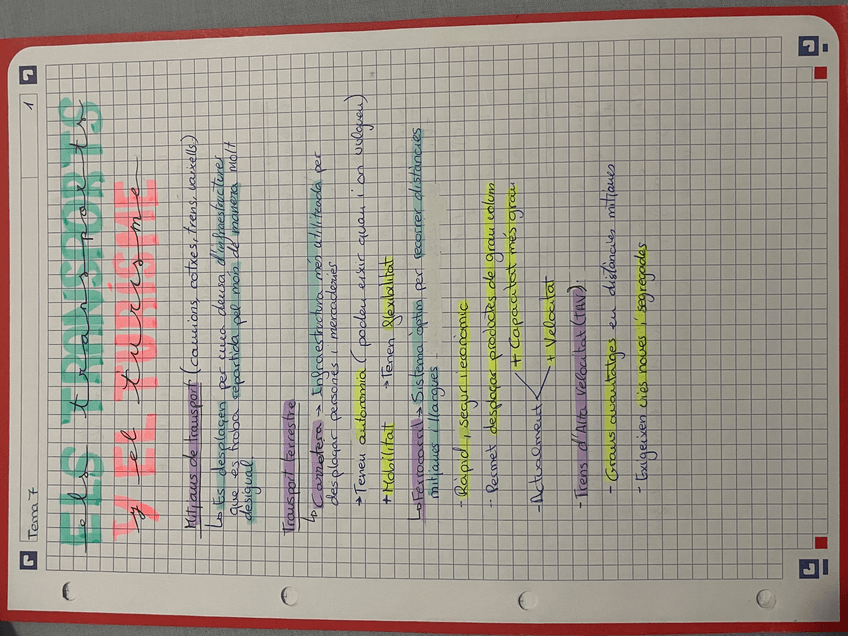 Tema 7
1
ELS TRANSPORTS
els transports
Y EL TURISME
y el turisme
Mitjans de transport (camions, cotxes, trens, vaixells)
↳ Es desplaçen per una densa d'infraestructures
que es troba repartida pel món de manera molt
desigual.
Transport terrestre
↳ Carretera → Infraestructura més utilitzada per
desplaçar persones i mercaderies
→ Tenen autonomia (poden eixir quan i on vulguen)
+ Mobilitat → Tenen flexibilitat
↳ Ferrocarril → Sistema òptim per recórrer distàncies
mitjanes i llargues
- Ràpid, segur i econòmic
- Permet desplaçar productes de gran volum
- Actualment + Capacitat més gran
+ Velocitat
- Trens d'Alta Velocitat (TAV):
- Grans avantatges en distàncies mitjanes
- Exigeixen vies noves i segregades